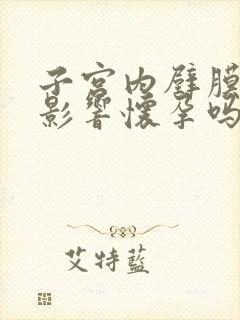 子宫内壁膜
影響懷孕吗
艾特藍